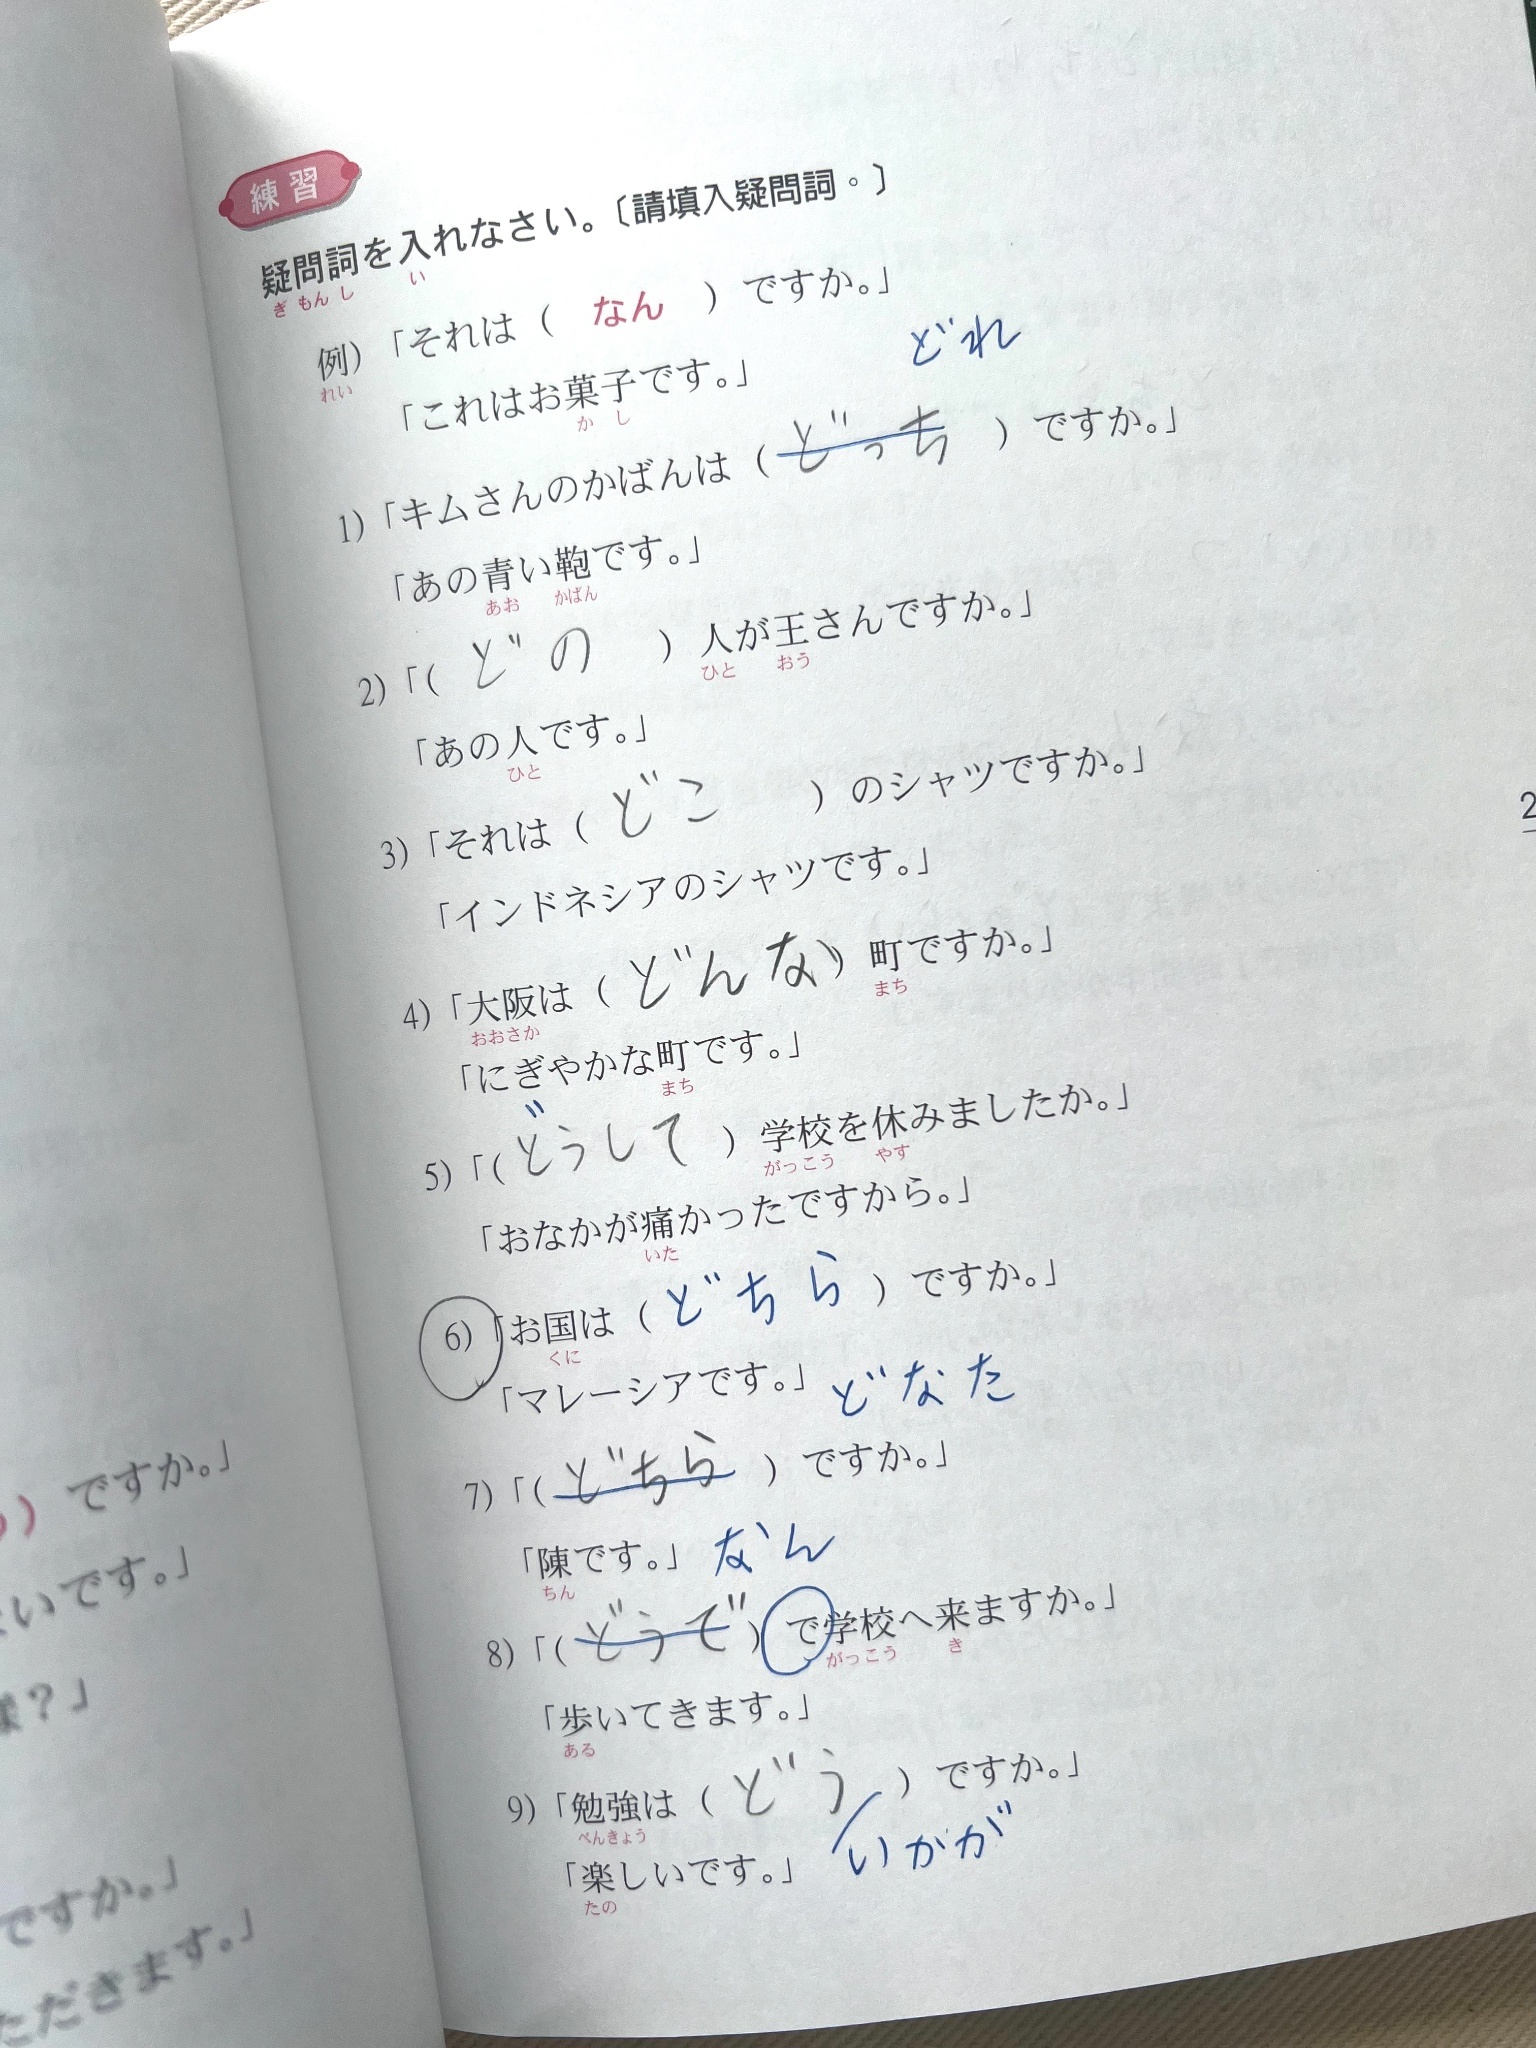 練習
疑問詞を入れなさい。〔請填入疑問詞。〕
ぎもんし い
例)「それは( なん )ですか。」
れい
どれ
「これはお菓子です。」
かし
1)「キムさんのかばんは( どっち )ですか。」
「あの青い鞄です。」
あお かばん
2)「( どの )人が王さんですか。」
ひと おう
「あの人です。」
ひと
3)「それは( どこ )のシャツですか。」
「インドネシアのシャツです。」
4)「大阪は( どんな )町ですか。」
おおさか まち
「にぎやかな町です。」
まち
5)「( どうして )学校を休みましたか。」
がっこう やす
「おなかが痛かったですから。」
いた
6)「お国は( どちら )ですか。」
くに
「マレーシアです。」
どなた
7)「( どちら )ですか。」
「陳です。」
ちん
なん
8)「( どうで )で学校へ来ますか。」
がっこう き
「歩いてきます。」
ある
9)「勉強は( どう )ですか。」
べんきょう
いかが
「楽しいです。」
たの
2
)ですか。」
いです。」
様？」
ですか。」
ただきます。」